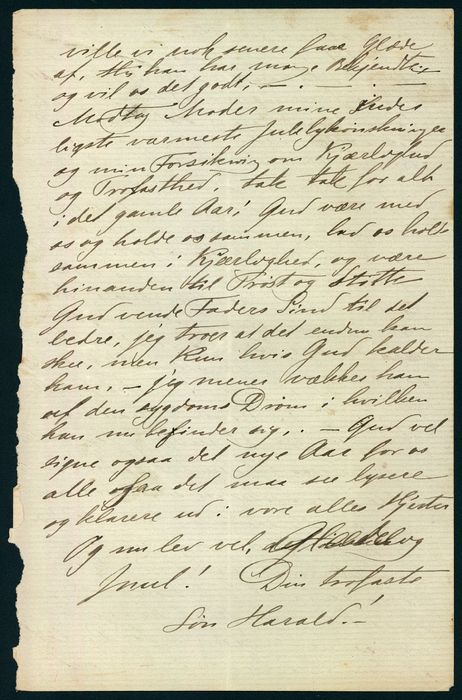 ville vi nok senere faae Glæde
af, thi han har mange Bekjendtsk
og vil os det godt, — . —
Modtag Moder mine Inder
ligste varmeste Julelykønskninger
og min Forsikring om Kjærlighed
og Trofasthed, tak tak for alt
i det gamle Aar! Gud være med
os og holde os sammen, lad os holde
sammen i Kjærlighed, og være
hinanden til Trøst og Støtte
Gud vende Faders Sind til det
bedre, jeg troer at det endnu kan
skee, men kun hvis Gud kalder
ham, — jeg mener vækkes han
af den sygdoms Drøm i hvilken
han nu befinder sig, . — Gud vel
signe ogsaa det nye Aar for os
alle og faa det maa see lysere
og klarere ud i vore alles Hjerter
Og nu lev vel, og
Juul! Din trofaste
Søn Harald! —